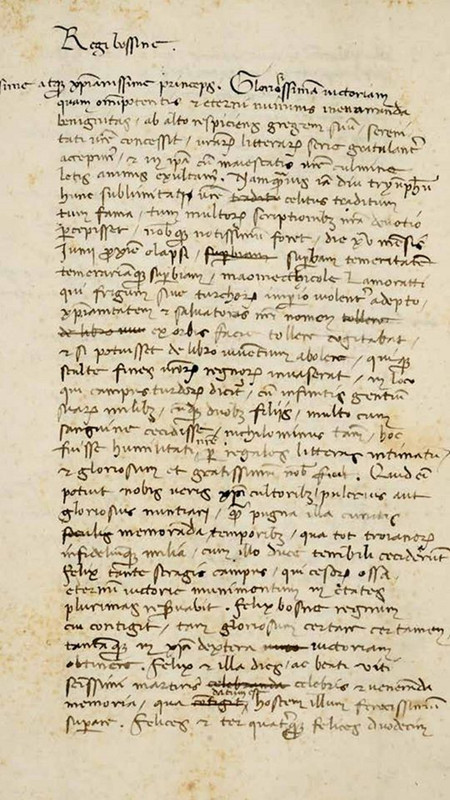 Regi bossine.
sime atque xpianissime princeps. Gloriosissimam victoriam
quam omnipotentis & eterni numinis inenarranda
benignitas, ab alto respiciens gregem suum, sereni
tati vre concessit, vrarum litterarum serie gratulanter
accepimus, & in ipsa cum maiestatis vre culmine
letis animis exultamus. Iam diu triumphum
hunc sublimitatis vre celitus traditum
tum fama, tum multorum scriptionibus nra devotio
perceperit, nobisque notissimum foret, die xv mensis
Iunii proxime elapsi, superbam temeritatem
temerariamque superbiam, maomethicole Lamoratti
qui frigum sive turchorum imperio violenter adepto,
xpianitatem & salvatoris nri nomen
de libro ex orbis facie tollere cogitabat,
& si potuisset de libro viventium abolere, quique
stulte fines vrorum regnorum invaserat, in loco
qui campus turdorum dicitur, cum infinitis gentium
suarum milibus, cumque duobus filiis, multo cum
sanguine cecidisse, nichilominus tamen, hoc
fuisse humilitati nre per regales litteras intimatum
& gloriosum et gratissimum nobis fuit. Quid enim
potuit nobis veris xpi cultoribus, pulcrius aut
gloriosius nuntiari, quam pugna illa cunctis
seculis memoranda temporibus, qua tot troianorum
infideliumque milia, cum illo duce terribili ceciderunt
Felix tante stragis campus, qui cesorum ossa,
eternum victorie munimentum in etates
plurimas reservabit. Felix bosne regnum
cui contigit, tam gloriosum certare certamen,
tantamque in xpi dextera victoriam
obtinere. Felix & illa dies, ac beati viti
sctissimi martiris celebranda celebris & veneranda
memoria, qua contigit datum est, hostem illum ferocissimum
superare. Felices & ter quaterque felices duodecim